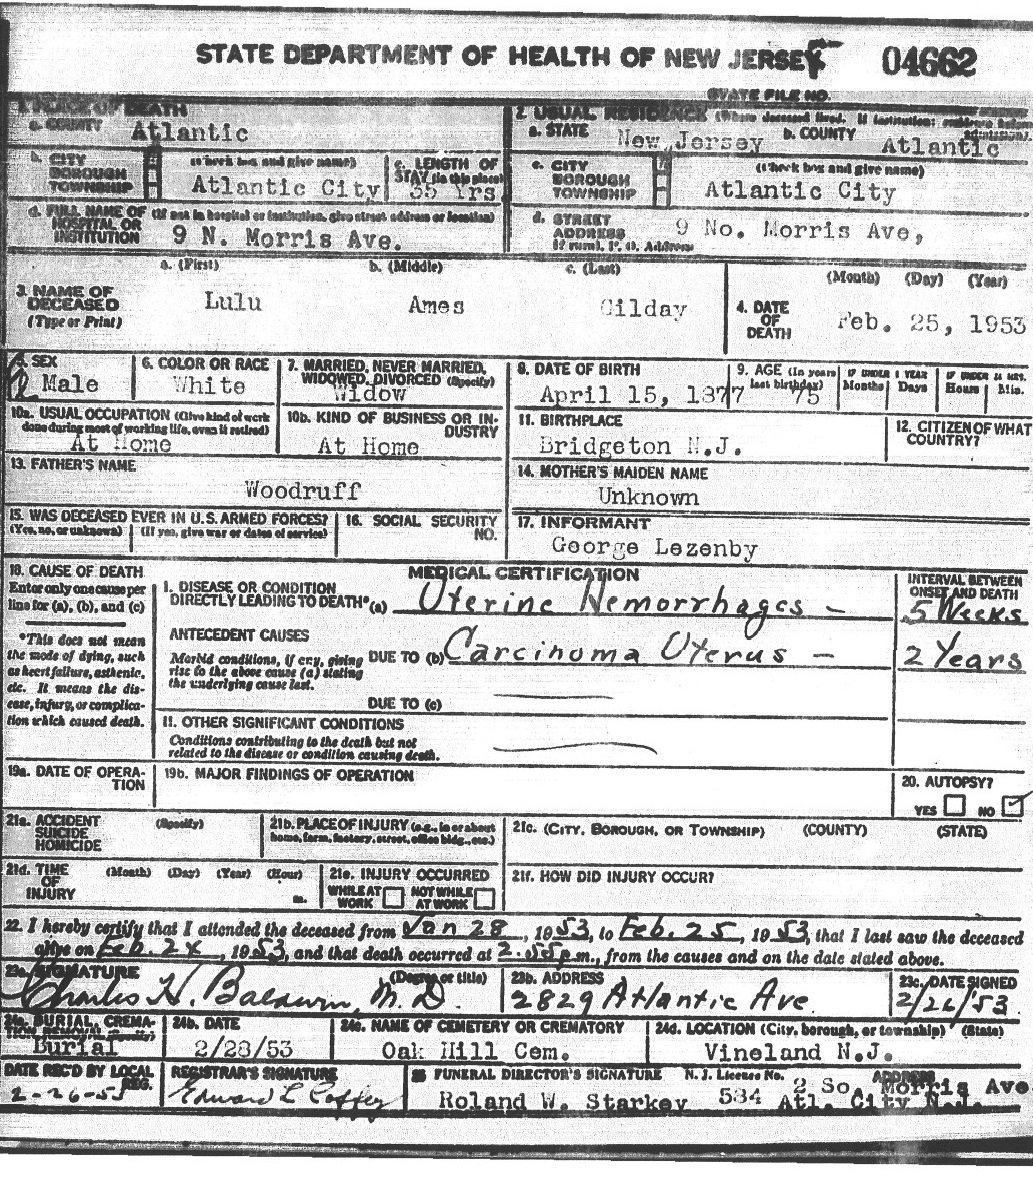 STATE DEPARTMENT OF HEALTH OF NEW JERSEY 04662
STATE FILE NO.
1. PLACE OF DEATH
a. COUNTY Atlantic
2. USUAL RESIDENCE (Where deceased lived. If institution: residence before admission)
a. STATE New Jersey b. COUNTY Atlantic
b. CITY BOROUGH TOWNSHIP (Check box and give name) Atlantic City
c. LENGTH OF STAY (In this place) 35 Yrs
c. CITY BOROUGH TOWNSHIP (Check box and give name) Atlantic City
d. FULL NAME OF HOSPITAL OR INSTITUTION (If not in hospital or institution, give street address or location) 9 N. Morris Ave.
d. STREET ADDRESS If rural, P. O. Address 9 No. Morris Ave,
3. NAME OF DECEASED (Type or Print)
a. (First) Lulu
b. (Middle) Ames
c. (Last) Gilday
4. DATE OF DEATH (Month) (Day) (Year) Feb. 25, 1953
5. SEX Male
6. COLOR OR RACE White
7. MARRIED, NEVER MARRIED, WIDOWED, DIVORCED (Specify) Widow
8. DATE OF BIRTH April 15, 1877
9. AGE (In years last birthday) 75
IF UNDER 1 YEAR Months Days
IF UNDER 24 HRS. Hours Min.
10a. USUAL OCCUPATION (Give kind of work done during most of working life, even if retired) At Home
10b. KIND OF BUSINESS OR INDUSTRY At Home
11. BIRTHPLACE Bridgeton N.J.
12. CITIZEN OF WHAT COUNTRY?
13. FATHER'S NAME Woodruff
14. MOTHER'S MAIDEN NAME Unknown
15. WAS DECEASED EVER IN U.S. ARMED FORCES? (Yes, no, or unknown) (If yes, give war or dates of service)
16. SOCIAL SECURITY NO.
17. INFORMANT George Lezenby
18. CAUSE OF DEATH
Enter only one cause per line for (a), (b), and (c)
*This does not mean the mode of dying, such as heart failure, asthenic, etc. It means the disease, injury, or complication which caused death.
MEDICAL CERTIFICATION
INTERVAL BETWEEN ONSET AND DEATH
I. DISEASE OR CONDITION DIRECTLY LEADING TO DEATH* (a) Uterine Hemorrhages - 5 Weeks
ANTECEDENT CAUSES
Morbid conditions, if any, giving rise to the above cause (a) stating the underlying cause last.
DUE TO (b) Carcinoma Uterus - 2 Years
DUE TO (c)
II. OTHER SIGNIFICANT CONDITIONS
Conditions contributing to the death but not related to the disease or condition causing death.
19a. DATE OF OPERATION
19b. MAJOR FINDINGS OF OPERATION
20. AUTOPSY? YES NO
21a. ACCIDENT SUICIDE HOMICIDE (Specify)
21b. PLACE OF INJURY (e.g., in or about home, farm, factory, street, office bldg., etc.)
21c. (CITY, BOROUGH, OR TOWNSHIP) (COUNTY) (STATE)
21d. TIME OF INJURY (Month) (Day) (Year) (Hour) m.
21e. INJURY OCCURRED WHILE AT WORK NOT WHILE AT WORK
21f. HOW DID INJURY OCCUR?
22. I hereby certify that I attended the deceased from Jan 28, 1953, to Feb. 25, 1953, that I last saw the deceased
alive on Feb. 24, 1953, and that death occurred at 2:55 p.m., from the causes and on the date stated above.
23a. SIGNATURE (Degree or title) Charles H. Baldwin, M.D.
23b. ADDRESS 2829 Atlantic Ave
23c. DATE SIGNED 2/26/'53
24a. BURIAL, CREMATION REMOVAL (Specify) Burial
24b. DATE 2/28/53
24c. NAME OF CEMETERY OR CREMATORY Oak Hill Cem.
24d. LOCATION (City, borough, or township) (State) Vineland N.J.
DATE REC'D BY LOCAL REG. 2-26-53
REGISTRAR'S SIGNATURE Edward L Coffey
25 FUNERAL DIRECTOR'S SIGNATURE Roland W. Starkey
N. J. License No. 534
ADDRESS 2 So. Morris Ave Atl. City N.J.